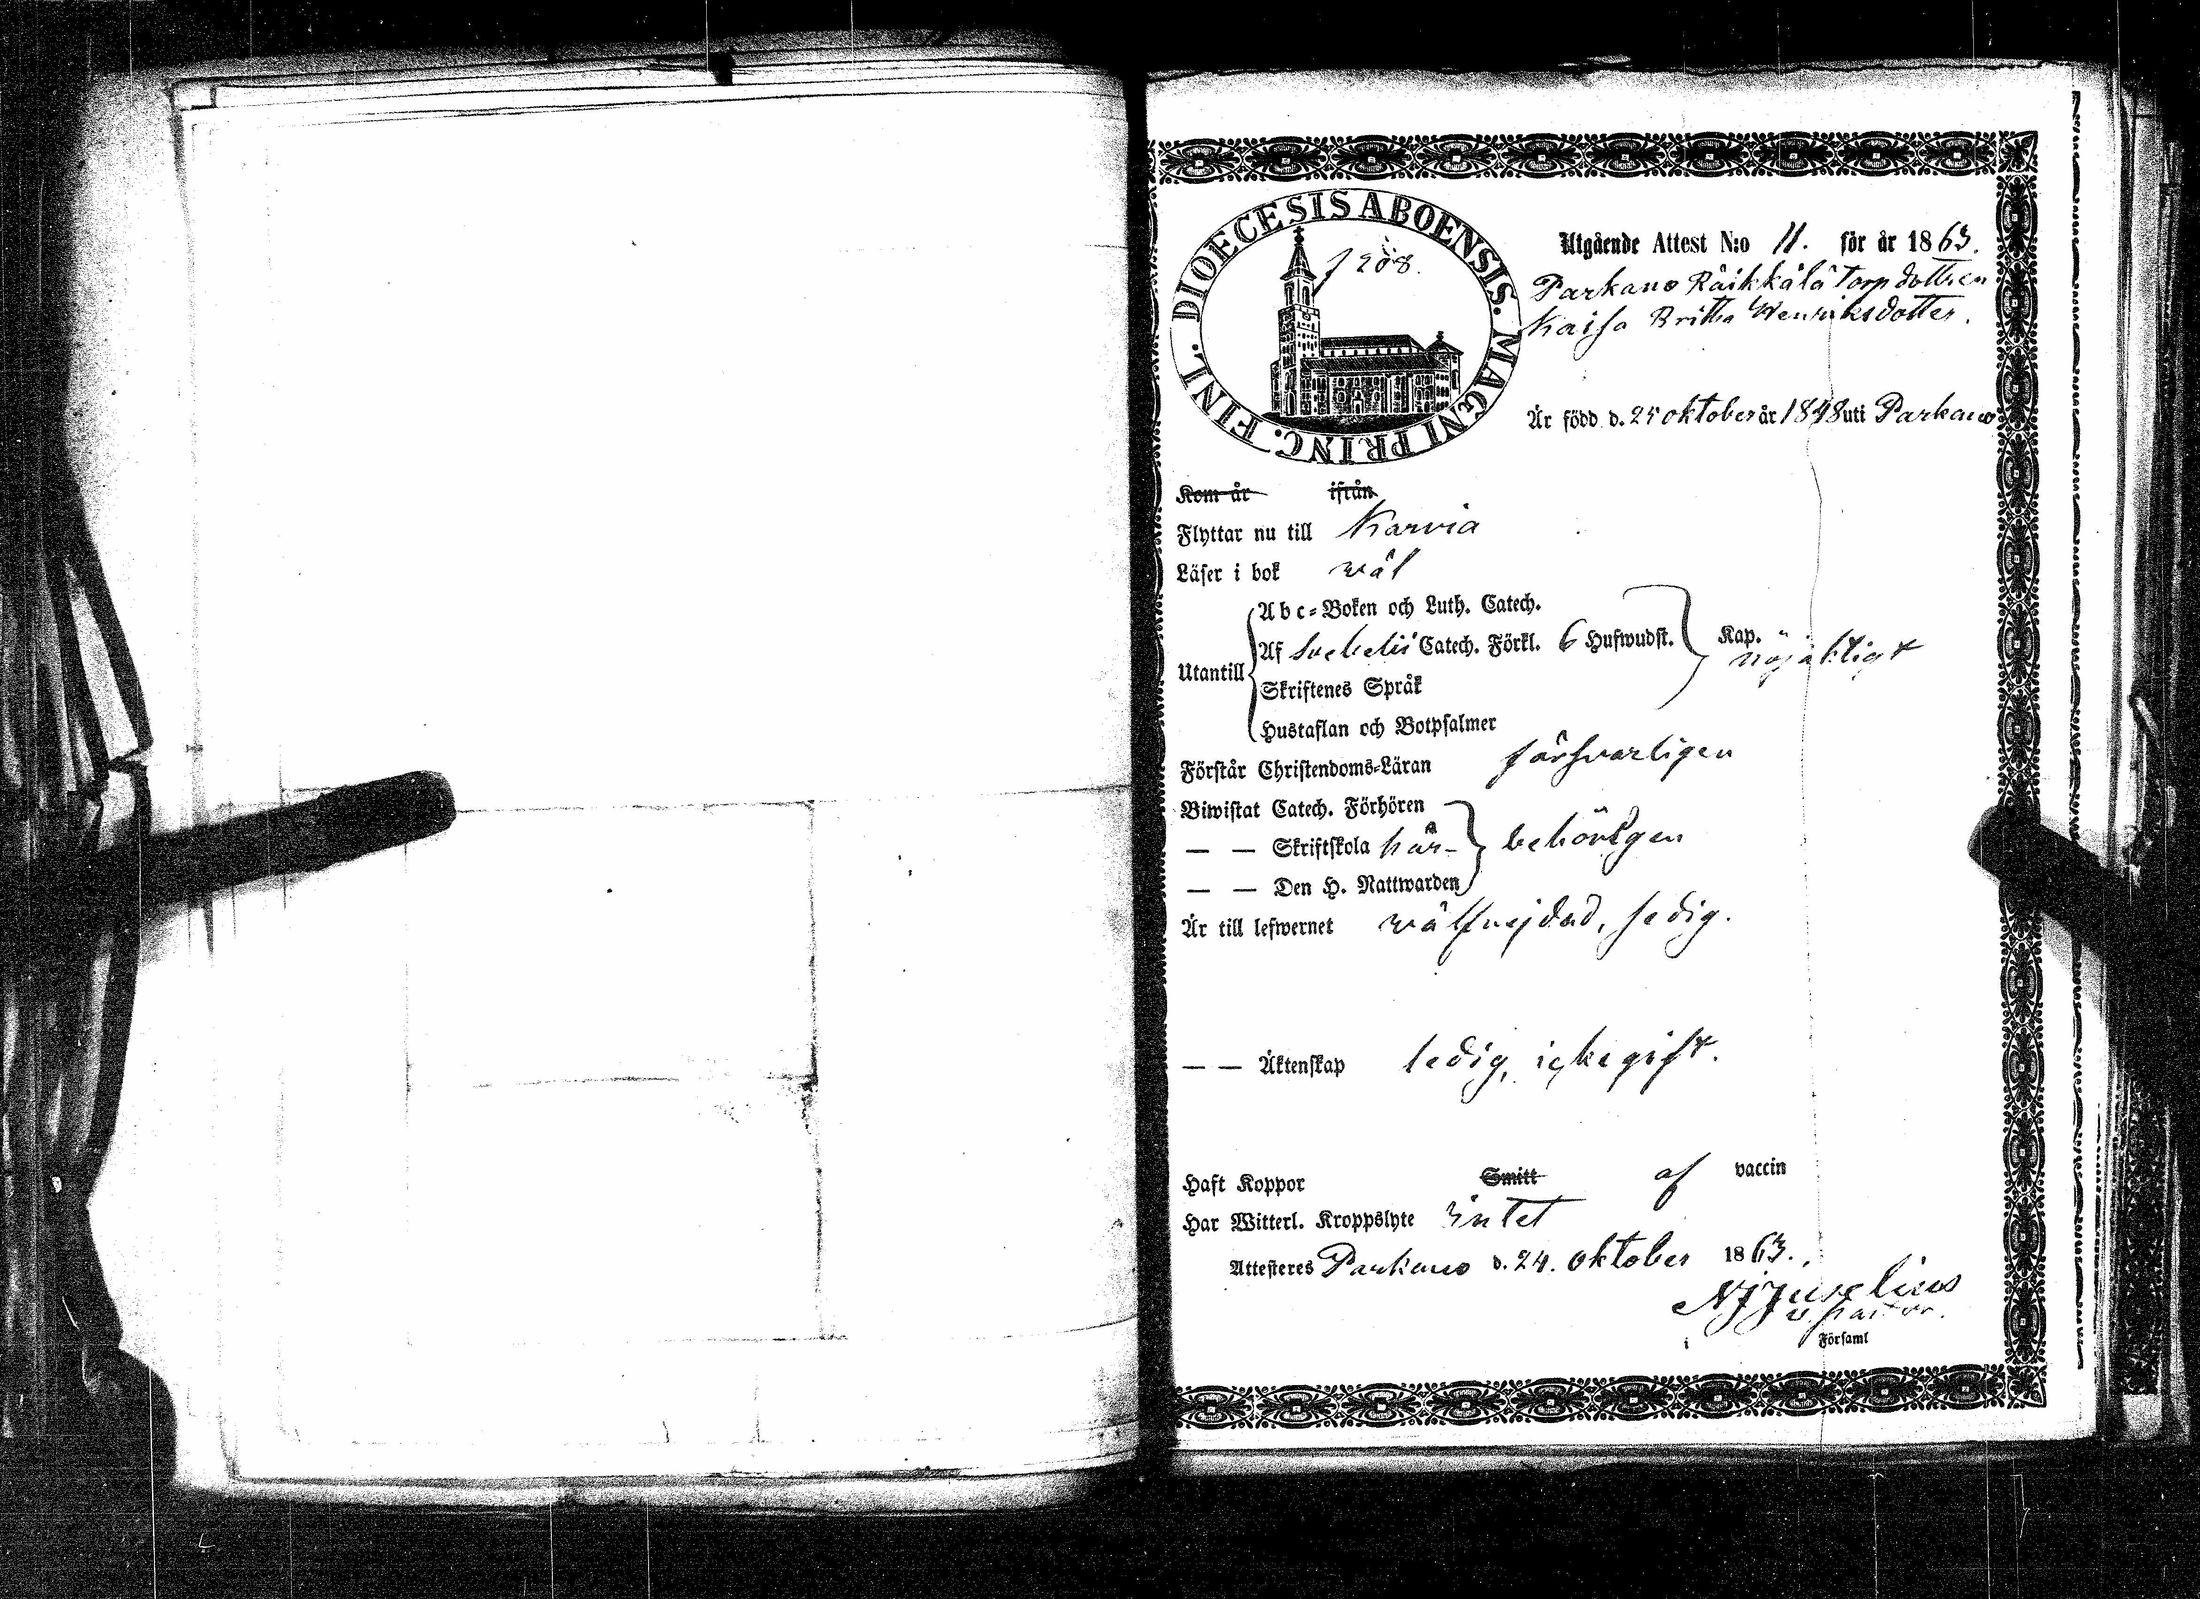 DIOECESIS ABOENSIS. MAGNI PRINC. FINL.
f 208.
Utgående Attest N:o 11. för år 1863.
Parkano Räikkälä Torpdottren
Kaisa Britta Henriksdotter.
Är född d. 25 oktober år 1848 uti Parkano
Kom år ifrån
Flyttar nu till Karvia
Läser i bok wäl
Abc-Boken och Luth. Catech.
Utantill Af Svebelii Catech. Förkl. 6 Hufwudst. Kap. nöjaktligt
Skriftenes Språk
Hustaflan och Botpsalmer
Förstår Christendoms-Läran försvarligen
Biwistat Catech. Förhören
— — Skriftskola här- behörigen
— — Den H. Nattwarden
Är till lefwernet wälfrejdad, sedig.
— — Äktenskap ledig, icke gift.
Haft Koppor Smitt af vaccin
Har Witterl. Kroppslyte intet
Attesteres Parkano d. 24. oktober 1863.
N J Juselius
v. pastor.
i Församl